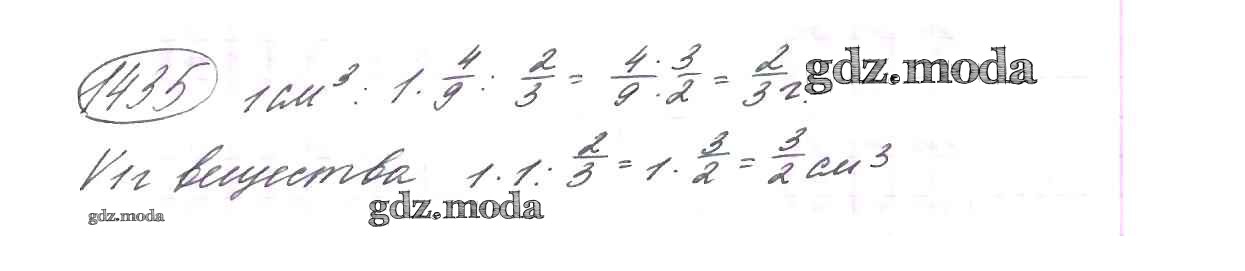 1435 1 см³: 1 · 4/9 : 2/3 = 4 · 3 / 9 · 2 = 2/3 г. gdz.moda
V 1г вещества 1 · 1 : 2/3 = 1 · 3/2 = 3/2 см³
gdz.moda gdz.moda